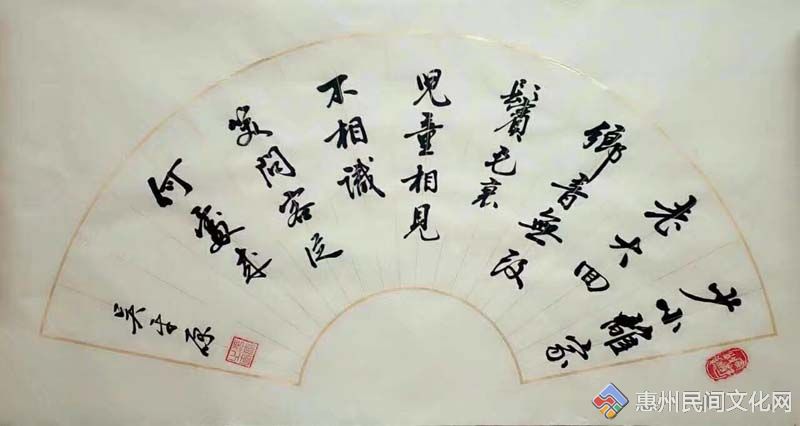 少小離家
老大回
鄉音無改
鬢毛衰
兒童相見
不相識
笑問客從
何處來
惠州民间文化网